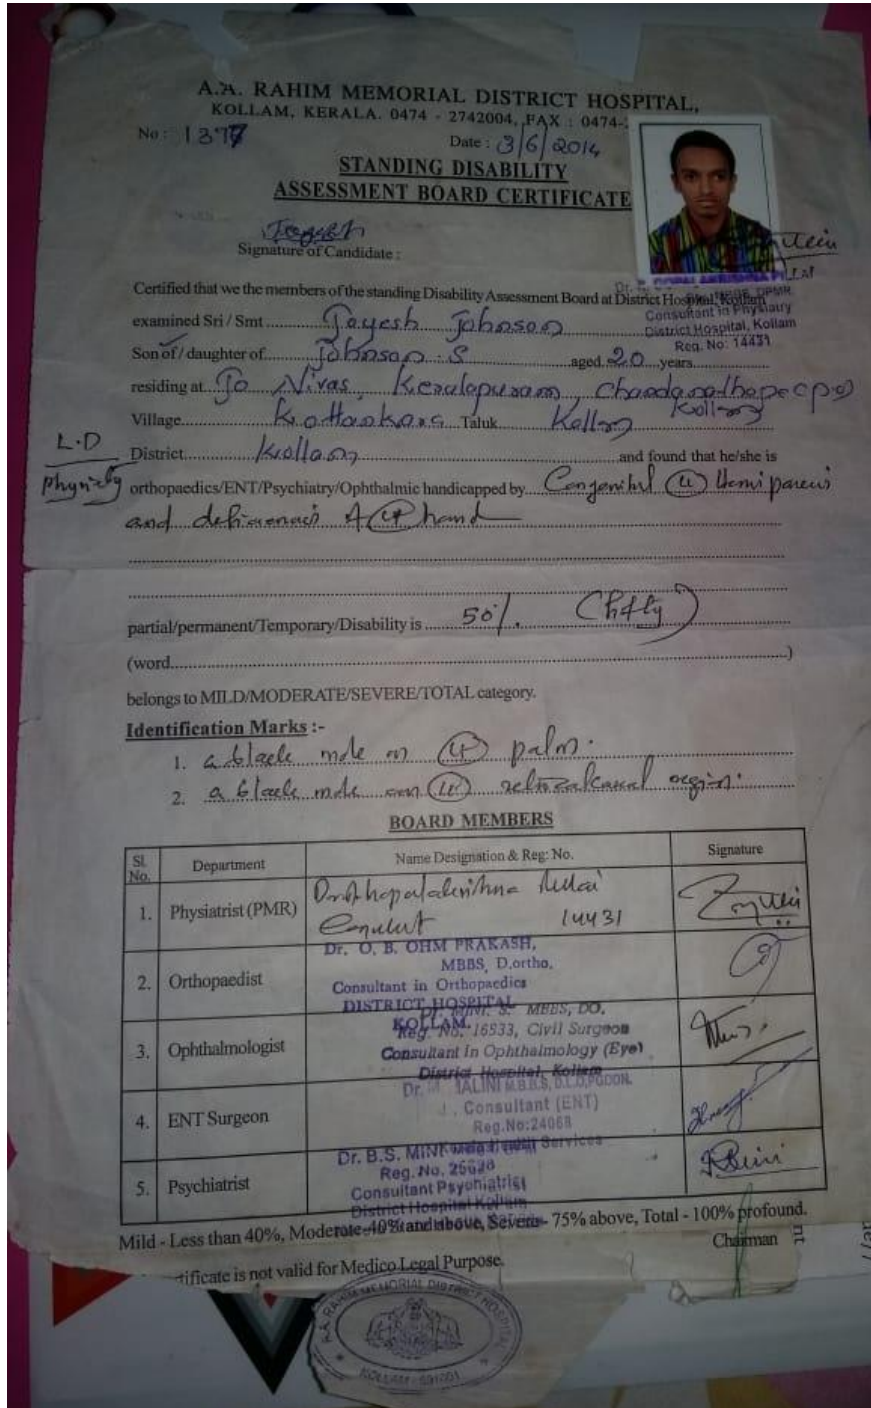 A.A. RAHIM MEMORIAL DISTRICT HOSPITAL,
KOLLAM, KERALA. 0474 - 2742004, FAX : 0474-
No : 1377
Date : 3/6/2014
STANDING DISABILITY
ASSESSMENT BOARD CERTIFICATE
Signature of Candidate :
Certified that we the members of the standing Disability Assessment Board at District Hospital, Kollam
Consultant in Physiatry
District Hospital, Kollam
Reg. No: 14431
examined Sri / Smt Jayesh Johnson
Son of / daughter of Johnson . S aged 20 years
residing at Jo Nivas, Keralapuram, Chandanathope (po)
Kollam
Village Kottankara Taluk Kollam
L.D
District Kollam and found that he/she is
orthopaedics/ENT/Psychiatry/Ophthalmic handicapped by Congenital Hemiparesis
and hand
partial/permanent/Temporary/Disability is 50%. (Fifty)
(word )
belongs to MILD/MODERATE/SEVERE/TOTAL category.
Identification Marks :-
1. a black mole on palm.
2. a black mole region.
BOARD MEMBERS
Sl. No. Department Name Designation & Reg: No. Signature
1. Physiatrist (PMR)
14431
2. Orthopaedist Dr. O. B. OHM PRAKASH,
MBBS, D.ortho.
Consultant in Orthopaedics
DISTRICT HOSPITAL
KOLLAM.
3. Ophthalmologist MINI. S. MBBS, DO.
Reg. No. 16933, Civil Surgeon
Consultant in Ophthalmology (Eye)
District Hospital, Kollam
4. ENT Surgeon Dr. M.B.B.S, D.L.O,
Consultant (ENT)
Reg.No:24068
5. Psychiatrist Dr. B.S. MINI
Reg. No.
Consultant Psychiatrist
District Hospital Kollam
Mild - Less than 40%, Moderate-40% and above, Severe - 75% above, Total - 100% profound.
Chairman
certificate is not valid for Medico Legal Purpose.
A.A. RAHIM MEMORIAL DISTRICT HOSPITAL
KOLLAM - 691001